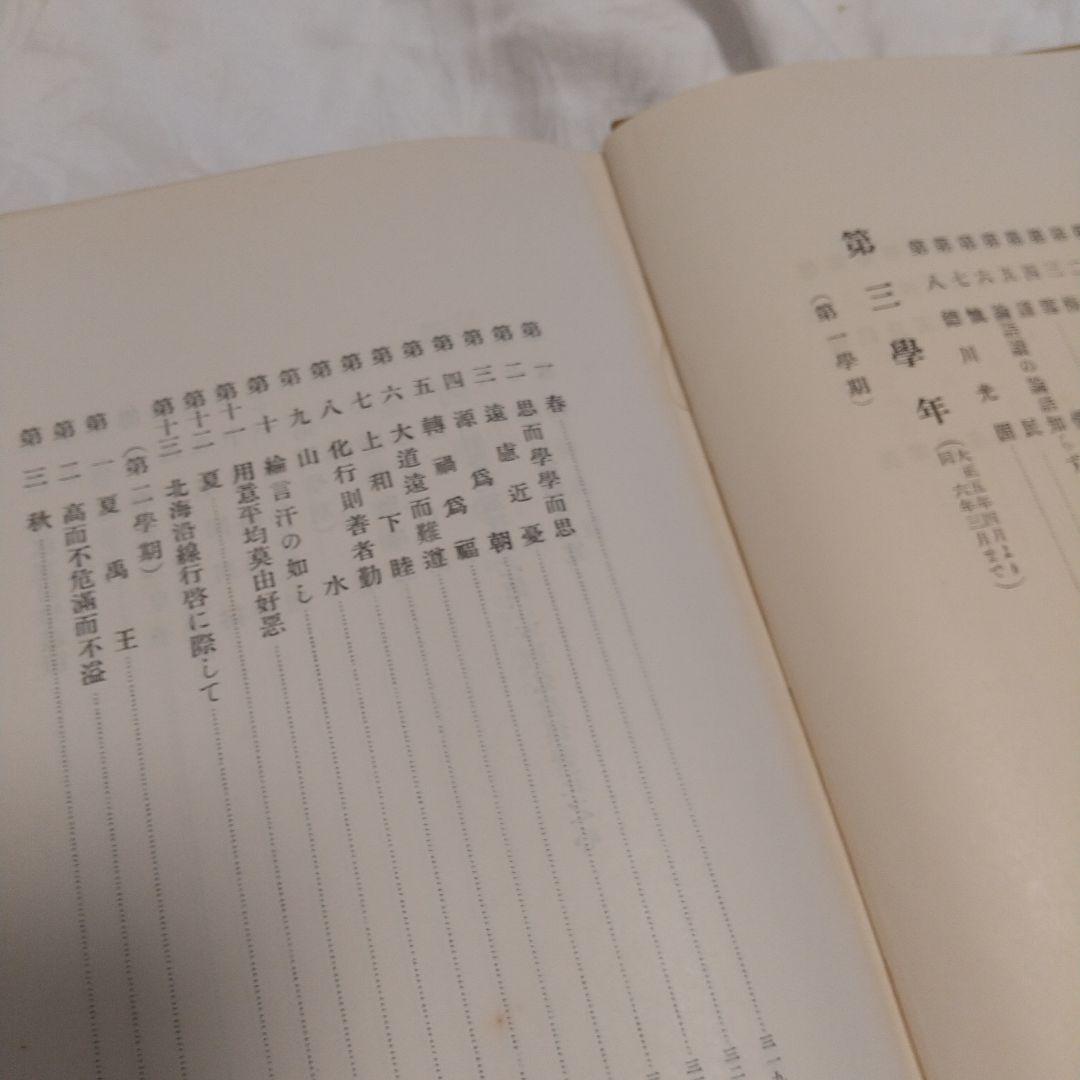 第六 論語讀の論語知らず
第七 恤民
第八 德川光圀
第三學年(大正五年四月より同六年三月まで)
(第一學期)
第一 春……三一九
第二 思而學學而思
第三 遠慮近憂
第四 源爲朝
第五 轉禍爲福
第六 大道遠而難遵
第七 上和下睦
第八 化行則善者勸
第九 山水
第十 綸言汗の如し
第十一 用意平均莫由好惡
第十二 夏
第十三 北海沿線行啓に際して
(第二學期)
第一 夏禹王
第二 高而不危滿而不溢
第三 秋